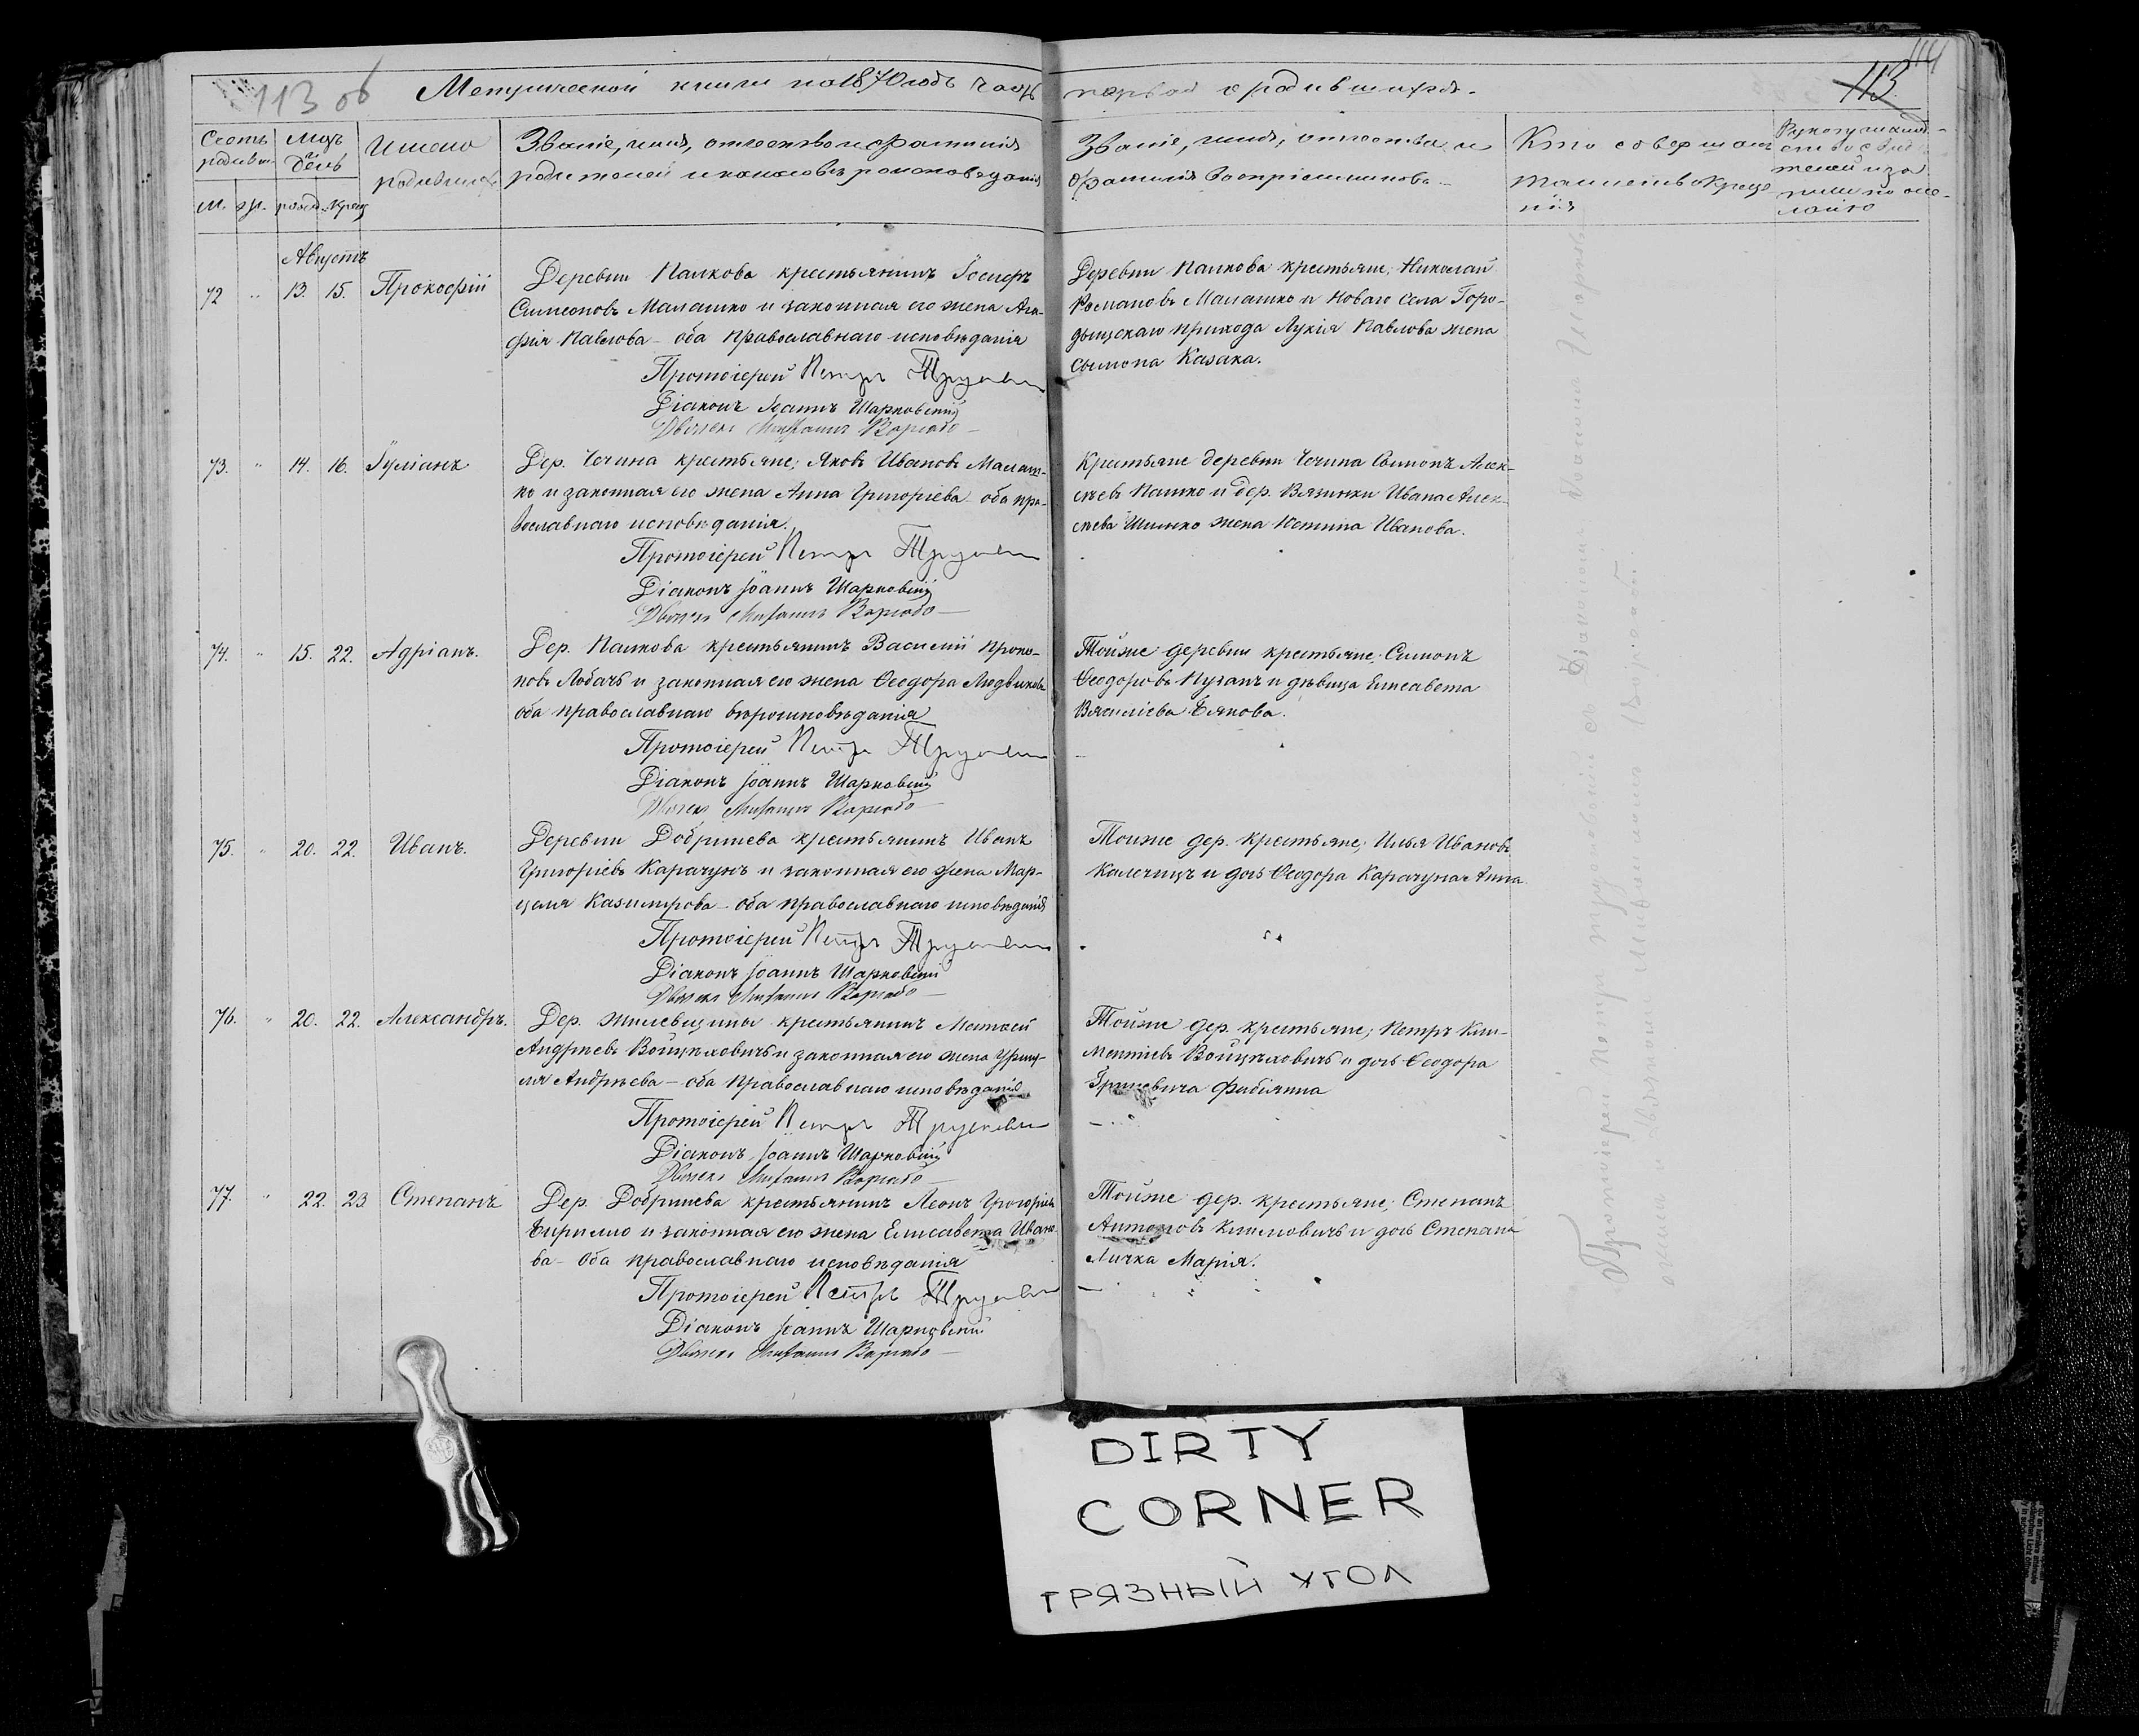 113 об
Метрической книги на 1870 годъ часть первая о родившихся.
113
114
Счетъ родивш.
М. Ж.
Мцъ и День
рожд. Крещ
Имена родившихъ
Званіе, имя, отчество и фамилія
родителей и какого вѣроисповѣданія
Званіе, имя, отчество и
фамилія Воспріемниковъ
Кто совершалъ
таинство Креще
нія
Рукоприклад-
ство свид
телей и за
писи по же-
ланію
Августъ
72 " 13. 15. Прокофій
Деревни Палкова крестьянинъ Іосифъ
Симеоновъ Малашко и законная его жена Ага-
фія Павлова - оба православнаго исповѣданія
Протоіерей Петръ
Діаконъ Іоаннъ Шарковскій
Дьячекъ Михаилъ
Деревни Палкова крестьяне; Николай
Романовъ Малашко и Новаго Села Горо-
дыщскаго прихода Лукія Павлова жена
Сымона Казака.
73. " 14. 16. Іуліанъ
Дер. Чечина крестьяне; Яковъ Ивановъ Малаш-
ко и законная его жена Анна Григоріева - оба пра-
вославнаго исповѣданія.
Протоіерей Петръ
Діаконъ Іоаннъ Шарковскій
Дьячекъ Михаилъ
Крестьяне деревни Чечина Сымонъ Алек-
сѣевъ Пашко и дер. Вязынки Ивана Алек-
сѣева Шишко жена Устина Иванова.
74. " 15. 22. Адріанъ.
Дер. Палкова крестьянинъ Василій Проко-
повъ Лобачъ и законная его жена Ѳеодора Людвикова
оба православнаго вѣроисповѣданія
Протоіерей Петръ
Діаконъ Іоаннъ Шарковскій
Дьячекъ Михаилъ
Тойже деревни крестьяне; Симонъ
Ѳеодоровъ Пуханъ и дѣвица Елисавета
Василіева Бякова.
75. " 20. 22. Иванъ.
Деревни Добринева крестьянинъ Иванъ
Григоріевъ Карачунъ и законная его жена Мар-
целя Казимирова - оба православнаго исповѣданія
Протоіерей Петръ
Діаконъ Іоаннъ Шарковскій
Дьячекъ Михаилъ
Тойже дер. крестьяне; Илья Ивановъ
Калечицъ и дочь Ѳеодора Карачуна Анна
76. " 20. 22. Александръ.
Дер. Жилевщины крестьянинъ Матѳей
Андреевъ Войцѣховичъ и законная его жена Уршу-
ля Андрѣева - оба православнаго исповѣданія
Протоіерей Петръ
Діаконъ Іоаннъ Шарковскій
Дьячекъ Михаилъ
Тойже дер. крестьяне; Петръ Кли-
ментіевъ Войцѣховичъ и дочь Ѳеодора
Гриневича Фабіянна
77. " 22. 23 Степанъ
Дер. Добринева крестьянинъ Леонъ Григоріевъ
и законная его жена Елисавета Ивано-
ва - Оба православнаго исповѣданія
Протоіерей Петръ
Діаконъ Іоаннъ Шарковскій
Дьячекъ Михаилъ
Тойже дер. крестьяне; Степанъ
Антоновъ Климовичъ и дочь Степана
Личка Марія.
Протоіерей Петръ
DIRTY
CORNER
ГРЯЗНЫЙ УГОЛ